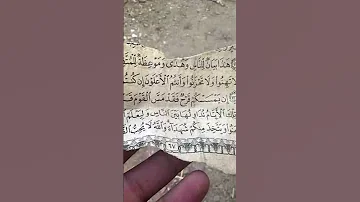 هَٰذَا بَيَانٌ لِّلنَّاسِ وَهُدًى وَمَوْعِظَةٌ
تَهِنُوا وَلَا تَحْزَنُوا وَأَنتُمُ الْأَعْلَوْنَ إِن
إِن يَمْسَسْكُمْ قَرْحٌ فَقَدْ مَسَّ الْقَوْمَ
الْأَيَّامُ نُدَاوِلُهَا بَيْنَ النَّاسِ وَلِيَعْلَمَ
وَيَتَّخِذَ مِنكُمْ شُهَدَاءَ وَاللَّهُ لَا يُحِبُّ
٦٧